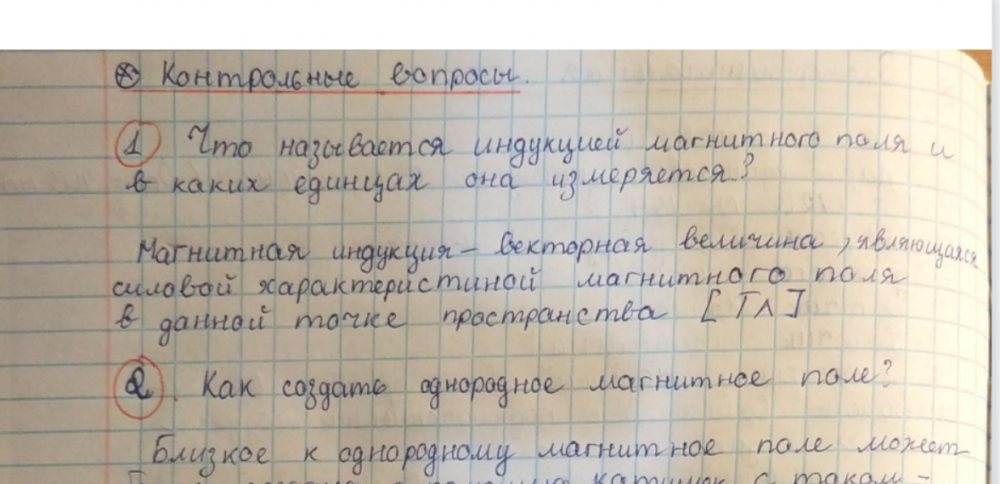 ⊛ Контрольные вопросы.
1 Что называется индукцией магнитного поля и
в каких единцах она измеряется?
Магнитная индукция – векторная величина, являющаяся
силовой характеристикой магнитного поля
в данной точке пространства [Тл]
2. Как создать однородное магнитное поле?
Близкое к однородному магнитное поле может
с током -